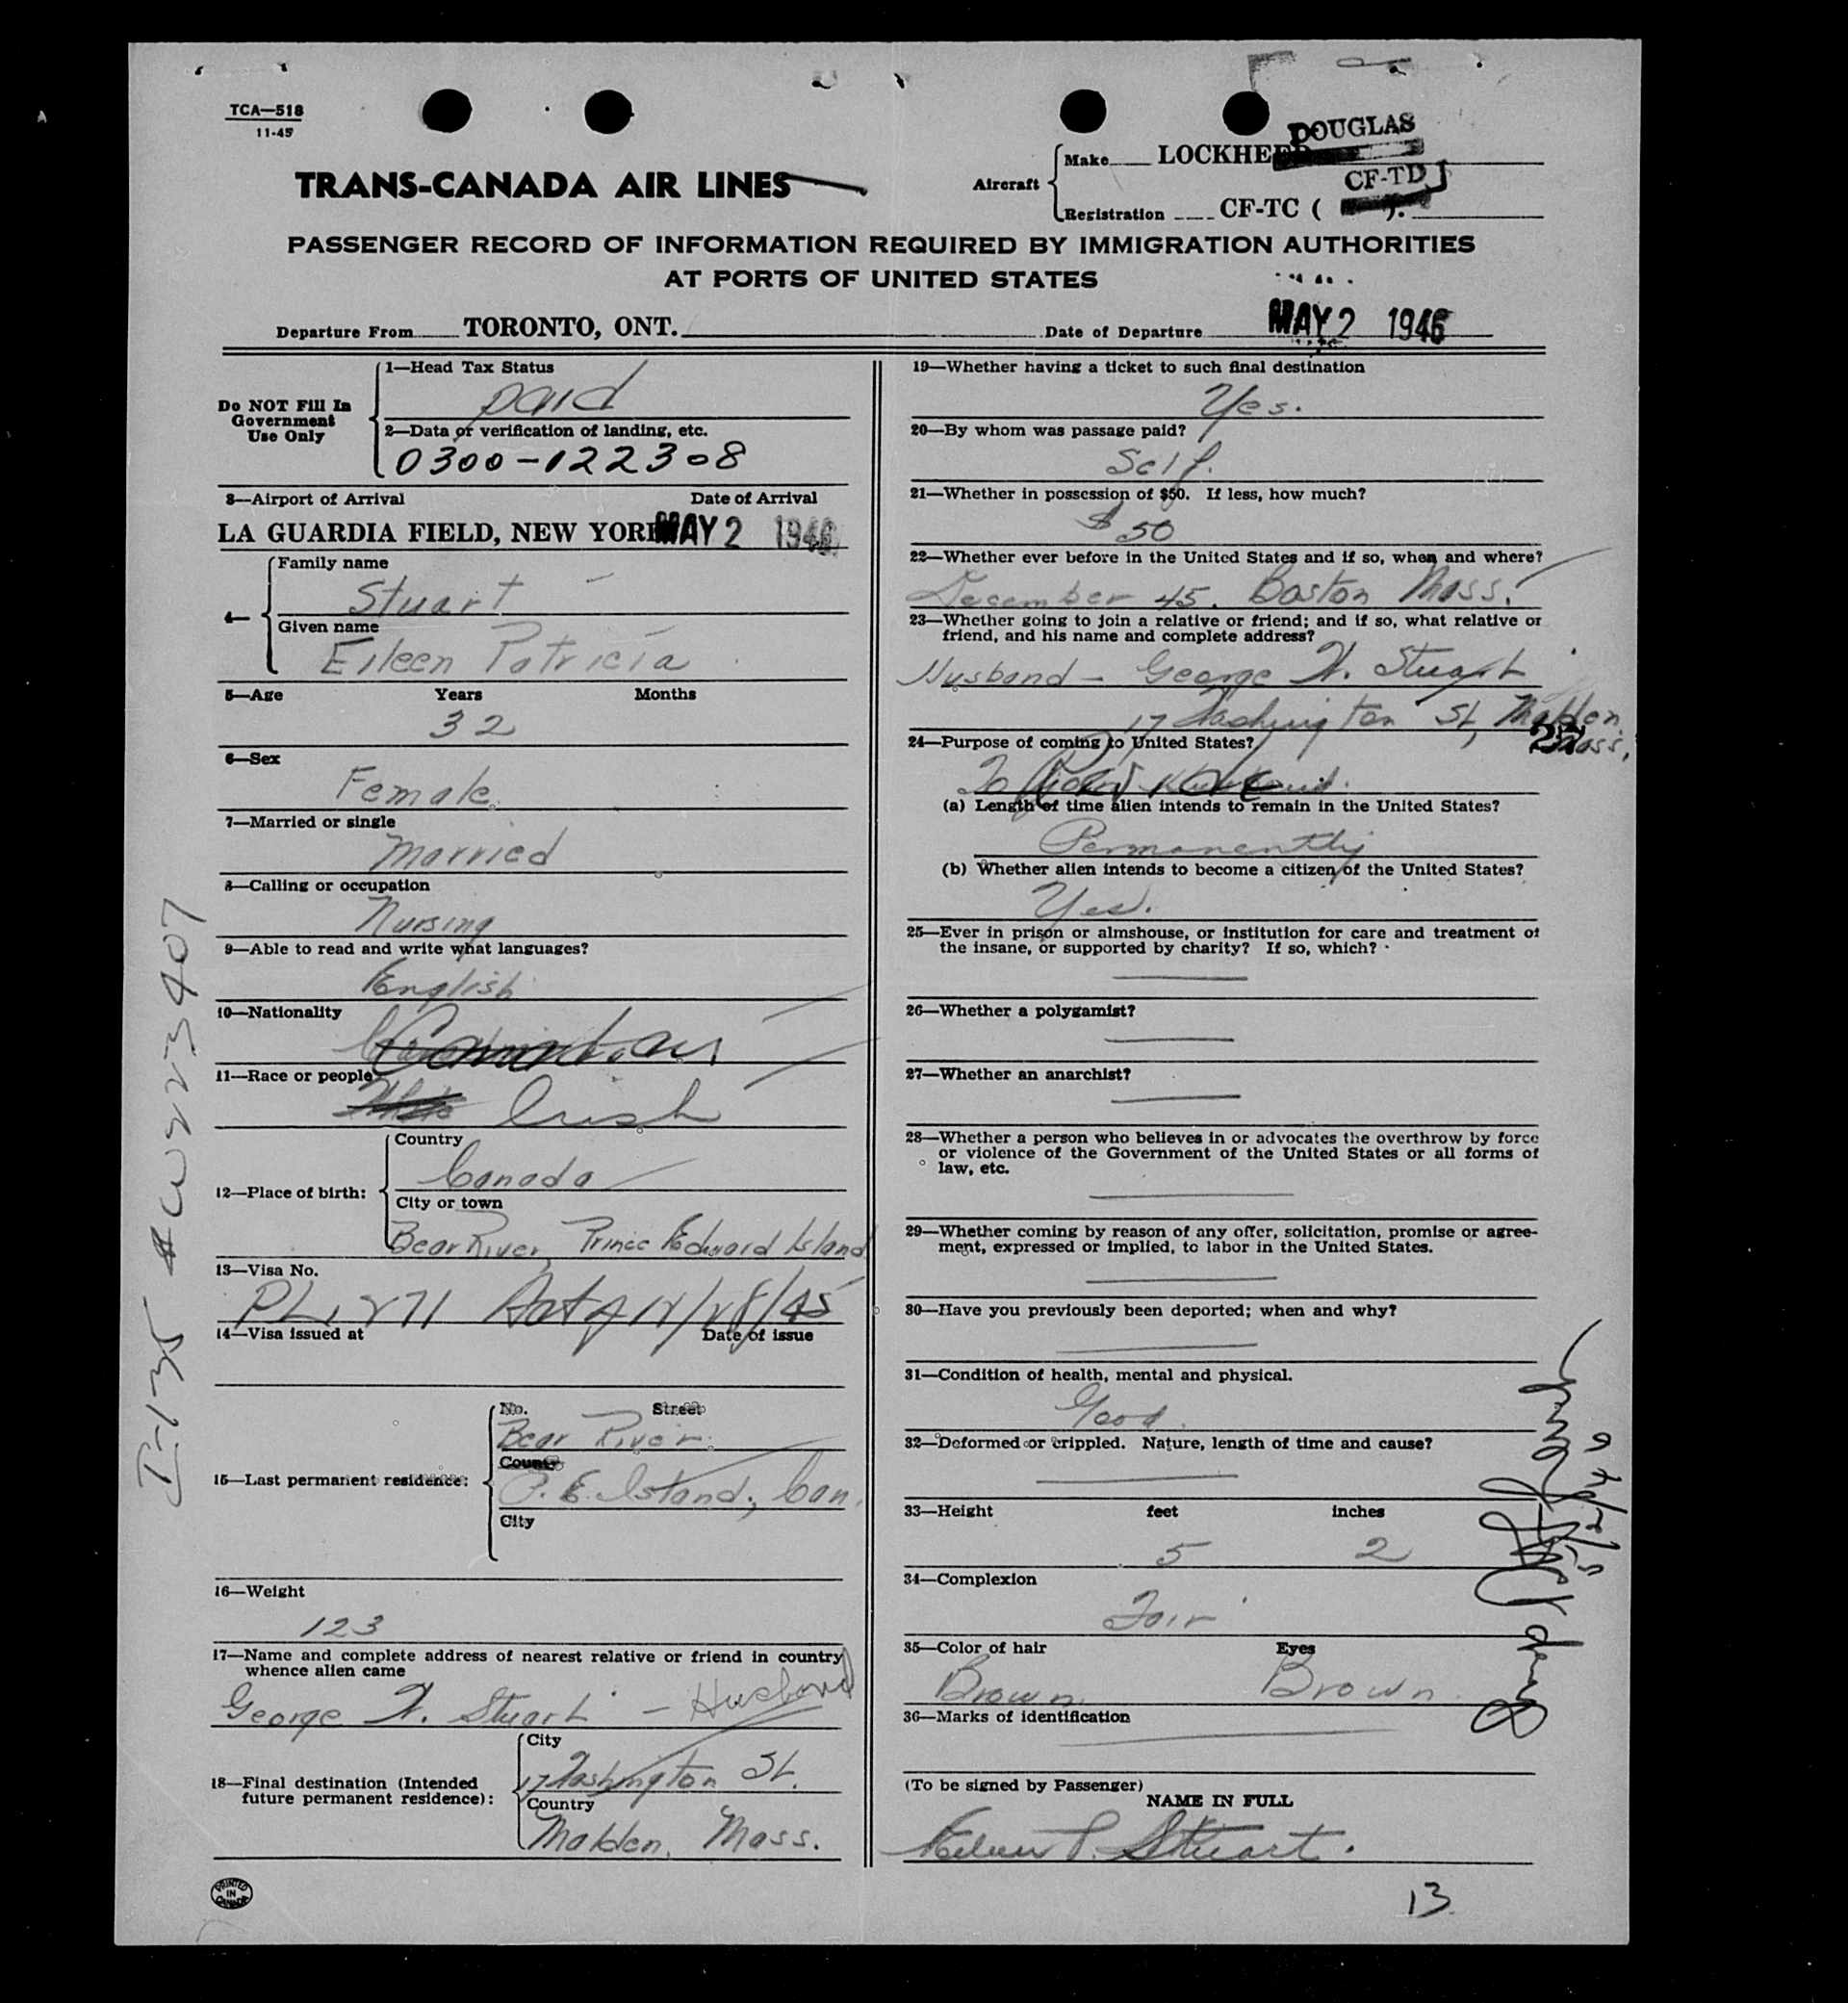 TCA—518
11-45
TRANS-CANADA AIR LINES
Aircraft
Make LOCKHEED DOUGLAS
Registration CF-TC ( ). CF-TDJ
PASSENGER RECORD OF INFORMATION REQUIRED BY IMMIGRATION AUTHORITIES
AT PORTS OF UNITED STATES
Departure From TORONTO, ONT. Date of Departure MAY 2 1946
Do NOT Fill In
Government
Use Only
1—Head Tax Status
paid
2—Data or verification of landing, etc.
0300-122308
3—Airport of Arrival Date of Arrival
LA GUARDIA FIELD, NEW YORK MAY 2 1946
4—
Family name
Stuart
Given name
Eileen Patricia
5—Age Years Months
32
6—Sex
Female
7—Married or single
Married
8—Calling or occupation
Nursing
9—Able to read and write what languages?
English
10—Nationality
Canadian
11—Race or people
White Irish
12—Place of birth:
Country
Canada
City or town
Bear River, Prince Edward Island
13—Visa No.
14—Visa issued at Date of issue
15—Last permanent residence:
No. Street
Bear River
County
P. E. Island, Can.
City
16—Weight
123
17—Name and complete address of nearest relative or friend in country
whence alien came
George W. Stuart - Husband
18—Final destination (Intended
future permanent residence):
City
17 Washington St.
Country
Malden, Mass.
PRINTED
IN
CANADA
19—Whether having a ticket to such final destination
Yes.
20—By whom was passage paid?
Self.
21—Whether in possession of $50. If less, how much?
$50
22—Whether ever before in the United States and if so, when and where?
December 45. Boston Mass.
23—Whether going to join a relative or friend; and if so, what relative or
friend, and his name and complete address?
Husband - George W. Stuart
17 Washington St, Malden
Mass.
24—Purpose of coming to United States?
To
(a) Length of time alien intends to remain in the United States?
Permanently
(b) Whether alien intends to become a citizen of the United States?
Yes.
25—Ever in prison or almshouse, or institution for care and treatment of
the insane, or supported by charity? If so, which?
26—Whether a polygamist?
27—Whether an anarchist?
28—Whether a person who believes in or advocates the overthrow by force
or violence of the Government of the United States or all forms of
law, etc.
29—Whether coming by reason of any offer, solicitation, promise or agree-
ment, expressed or implied, to labor in the United States.
30—Have you previously been deported; when and why?
31—Condition of health, mental and physical.
Good
32—Deformed or crippled. Nature, length of time and cause?
33—Height feet inches
5 2
34—Complexion
Fair
35—Color of hair Eyes
Brown Brown
36—Marks of identification
(To be signed by Passenger)
NAME IN FULL
Eileen P. Stuart.
13